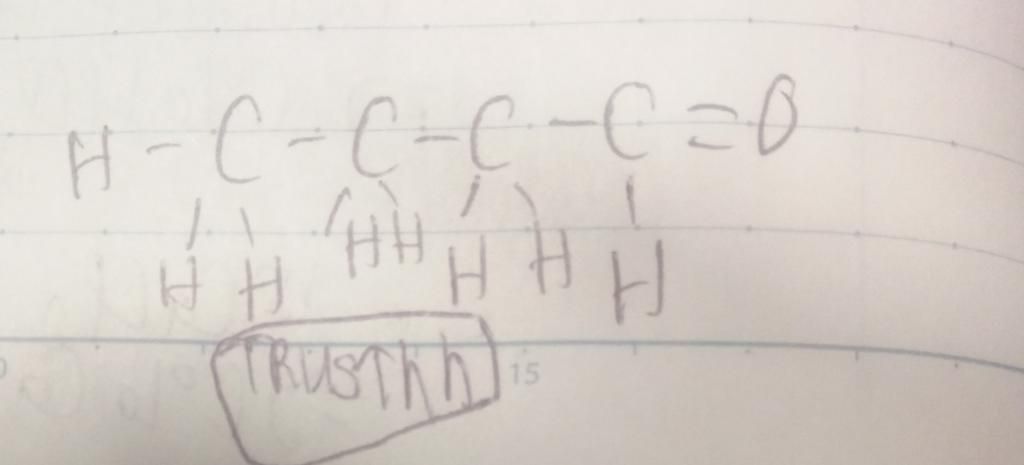 H - C - C - C - C = O
H H H H H H H
TRUSThh
15